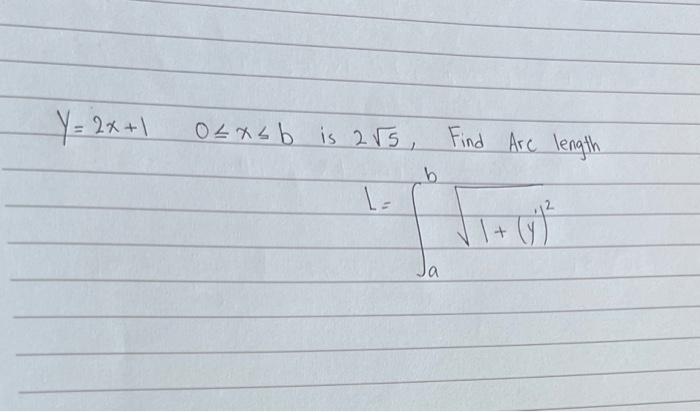 Y = 2x+1 0 ≤ x ≤ b is 2√5, Find Arc length
L = ∫_a^b √(1 + (y')²